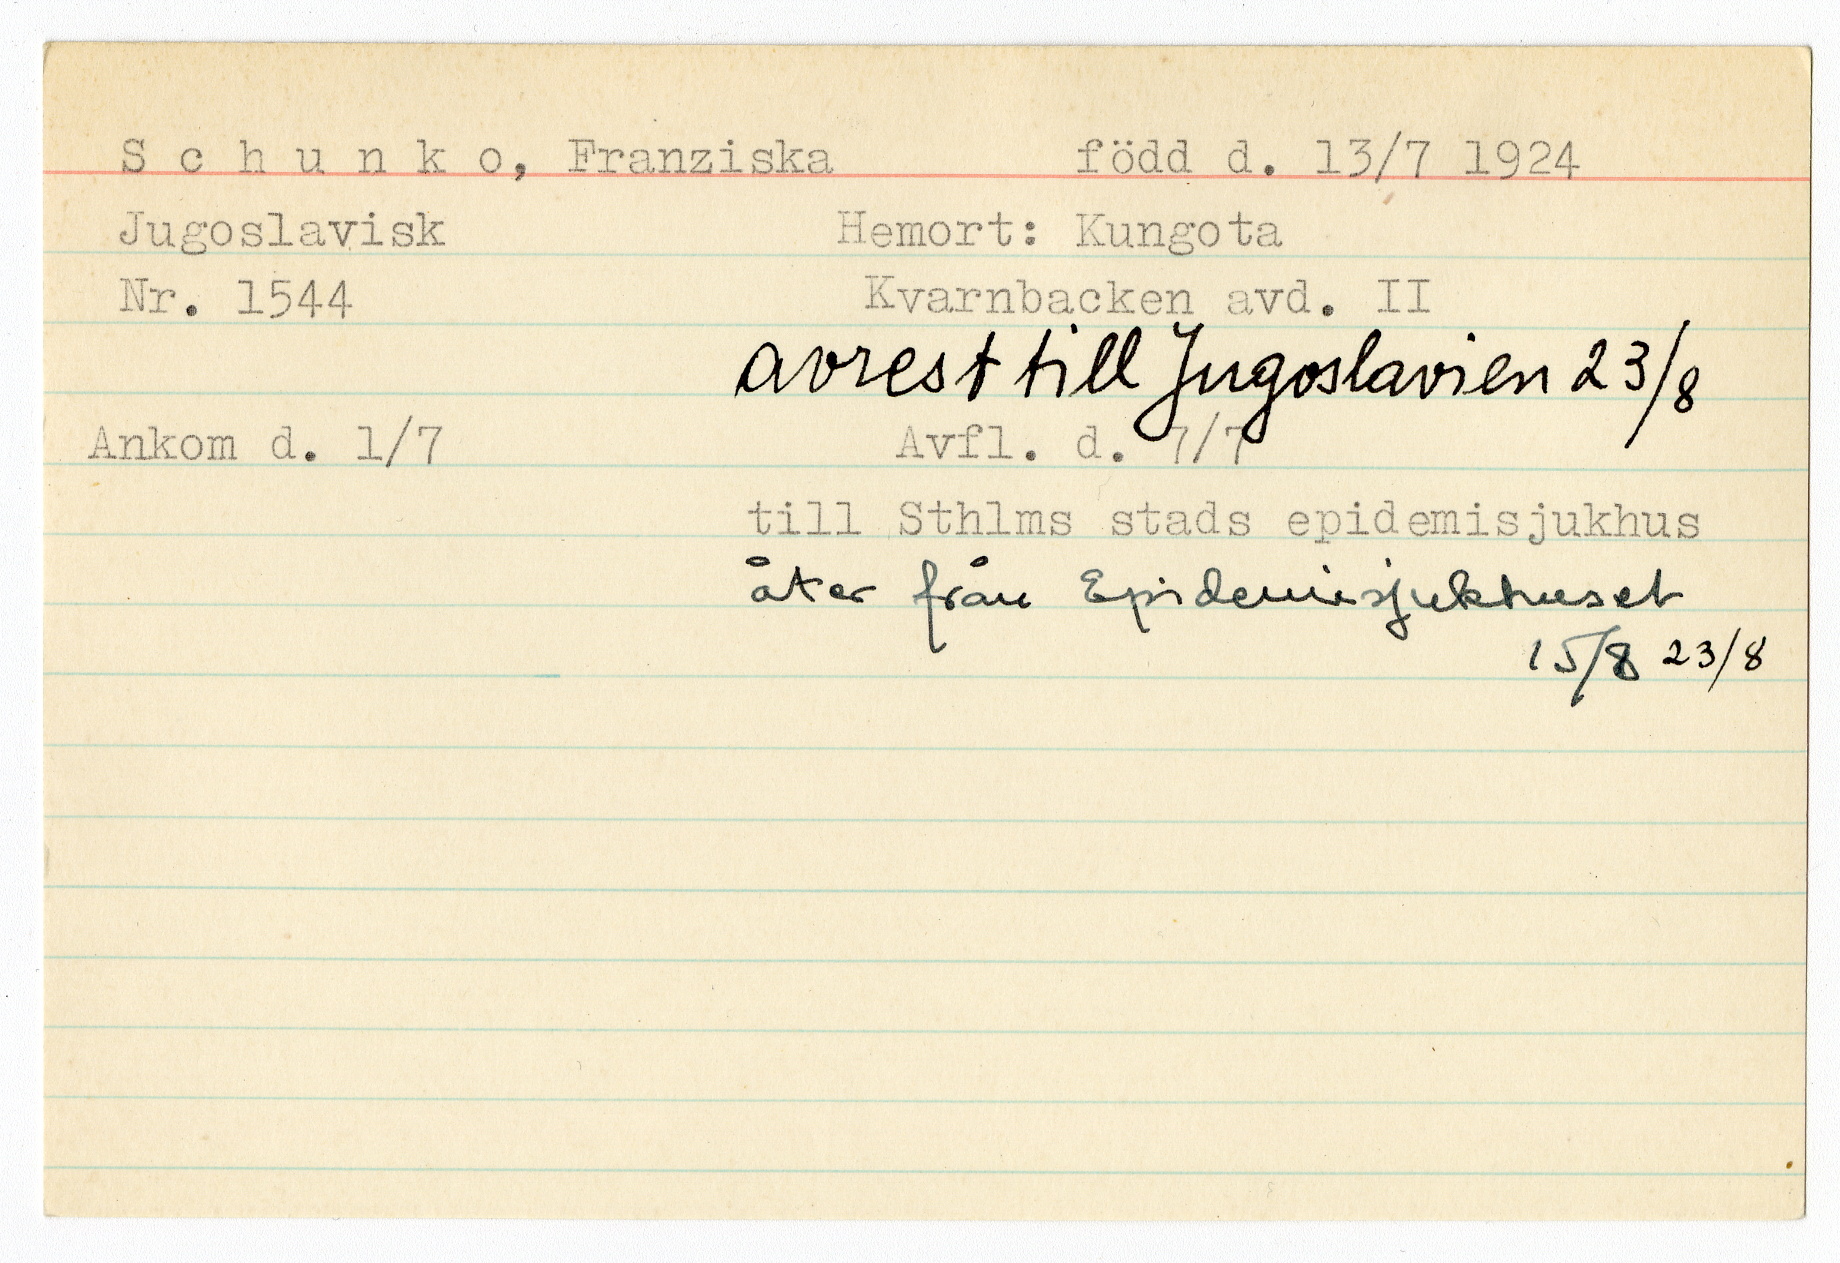 S c h u n k o, Franziska född d. 13/7 1924
Jugoslavisk Hemort: Kungota
Nr. 1544 Kvarnbacken avd. II
avrest till Jugoslavien 23/8
Ankom d. 1/7 Avfl. d. 7/7
till Sthlms stads epidemisjukhus
åter från Epidemisjukhuset
15/8 23/8